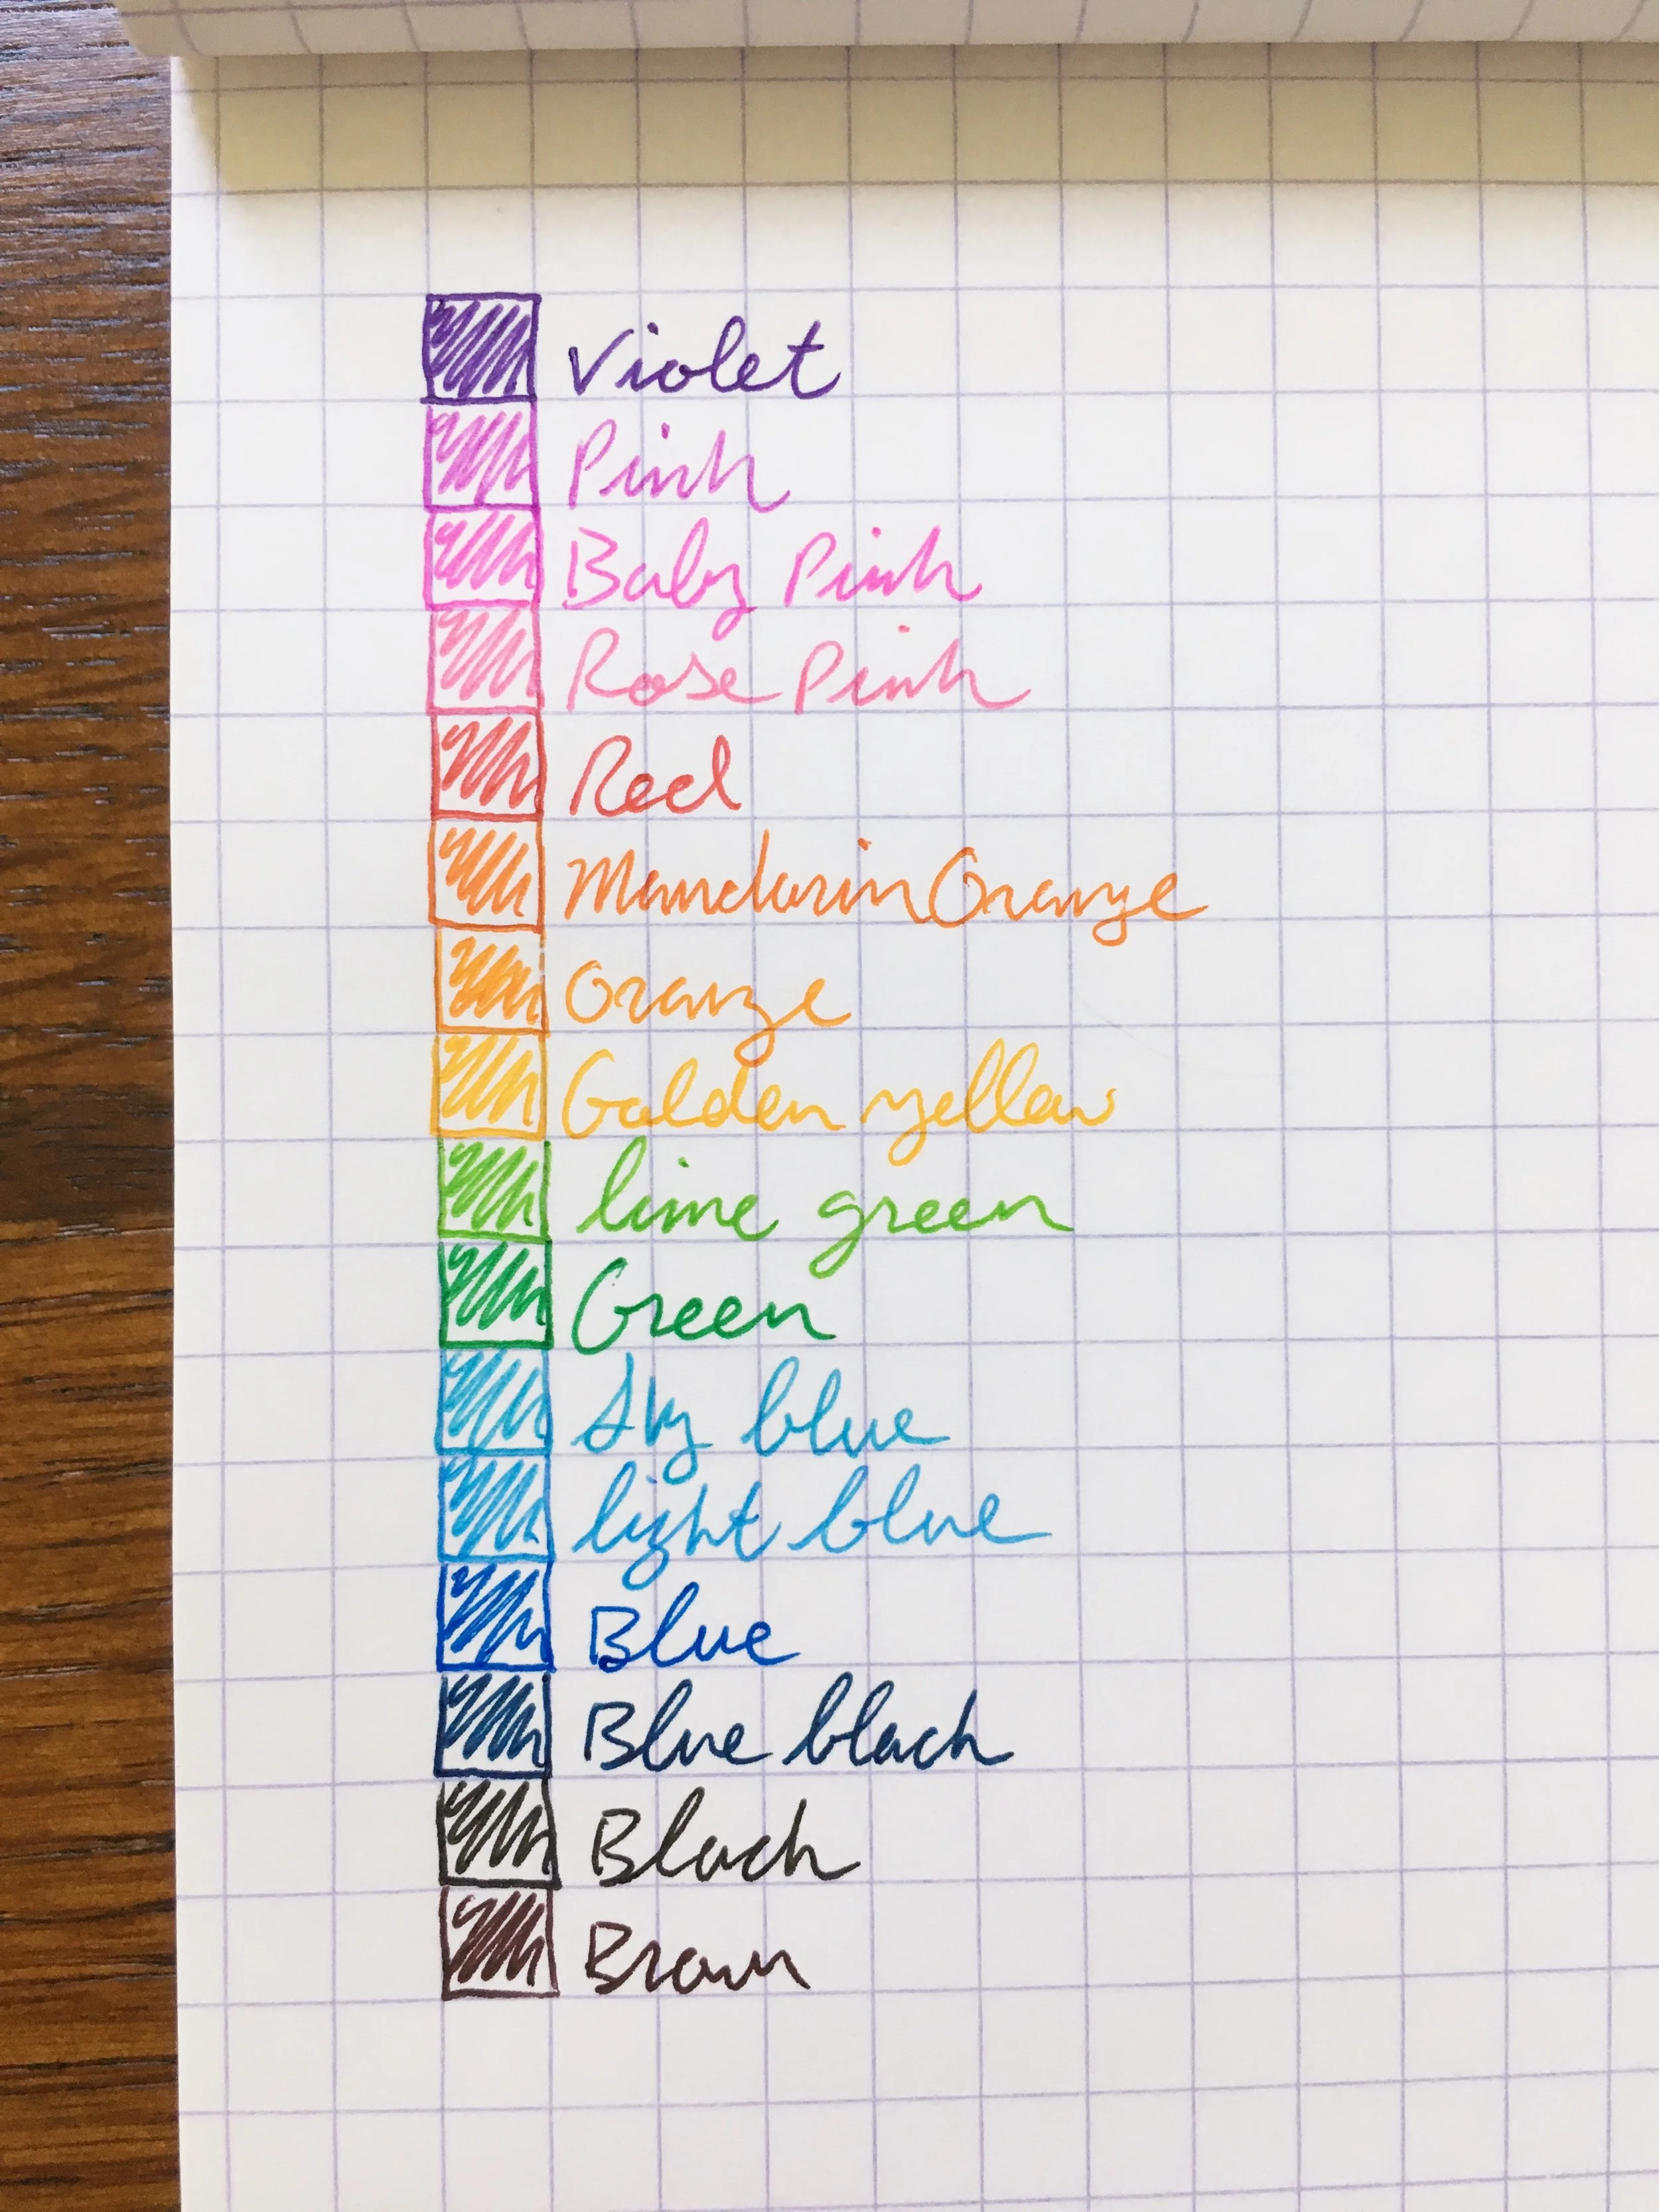 Violet
Pink
Baby Pink
Rose Pink
Red
Mandarin Orange
Orange
Golden yellow
lime green
Green
Sky blue
light blue
Blue
Blue black
Black
Brown